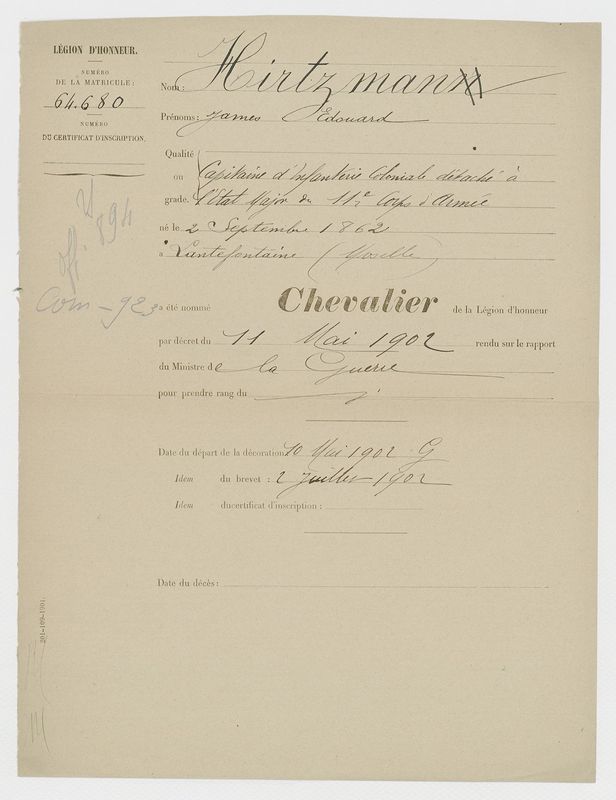 LÉGION D'HONNEUR.
NUMÉRO
DE LA MATRICULE :
64.680
NUMÉRO
DU CERTIFICAT D'INSCRIPTION.
Nom : Hirtzmann
Prénoms : James Edouard
Qualité
ou Capitaine d'Infanterie Coloniale détaché à
grade. l'Etat Major du 11e Corps d'Armée
né le 2 Septembre 1862
à Lientefontaine (Moselle)
off.
894
Com - 923
a été nommé Chevalier de la Légion d'honneur
par décret du 11 Mai 1902 rendu sur le rapport
du Ministre de la Guerre
pour prendre rang du
Date du départ de la décoration 10 Mai 1902 G
Idem du brevet : 2 Juillet 1902
Idem du certificat d'inscription :
Date du décès :
201-109-1901.